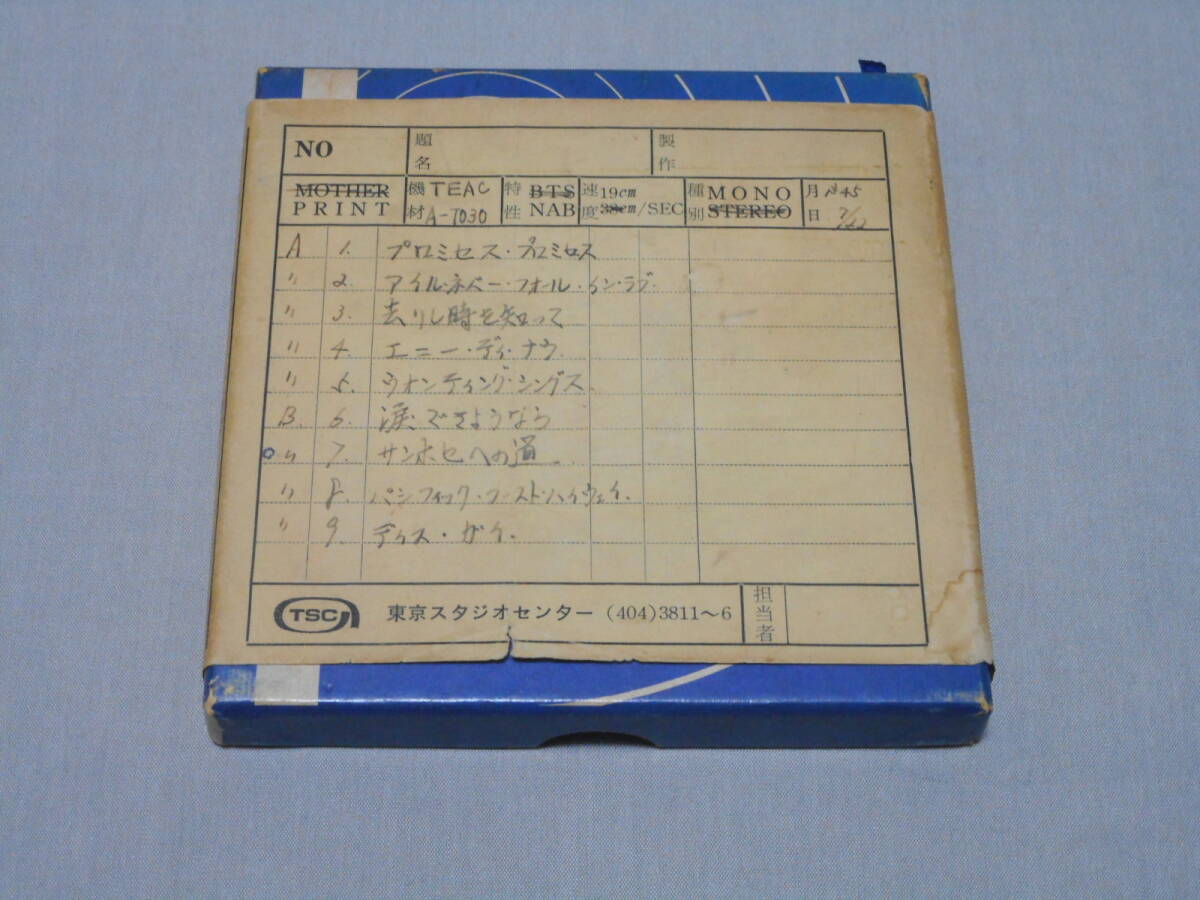 NO 題名 製作
MOTHER PRINT 機材 TEAC A-7030 特性 BTS NAB 速度 19cm 38cm/SEC 種別 MONO STEREO 月日 S45 7/22
A 1. プロミセス・プロミセス
〃 2. アイル・ネバー・フォール・イン・ラブ.
〃 3. 去りし時を知って
〃 4. エニー・デイ・ナウ.
〃 5. ウオンティング・シングス.
B. 6. 涙でさようなら
〃 7. サンホセへの道.
〃 8. パシフィック・コースト・ハイウェイ.
〃 9. ディス・ガイ.
TSC 東京スタジオセンター (404)3811〜6 担当者